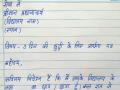 सेवा में
श्रीमान प्रधानाचार्य
(विद्यालय नाम)
(स्थान)
विषय- 3 दिन की छुट्टी के लिए प्रार्थना पत्र
महोदय,
सविनय निवेदन है कि मैं आपके विद्यालय के